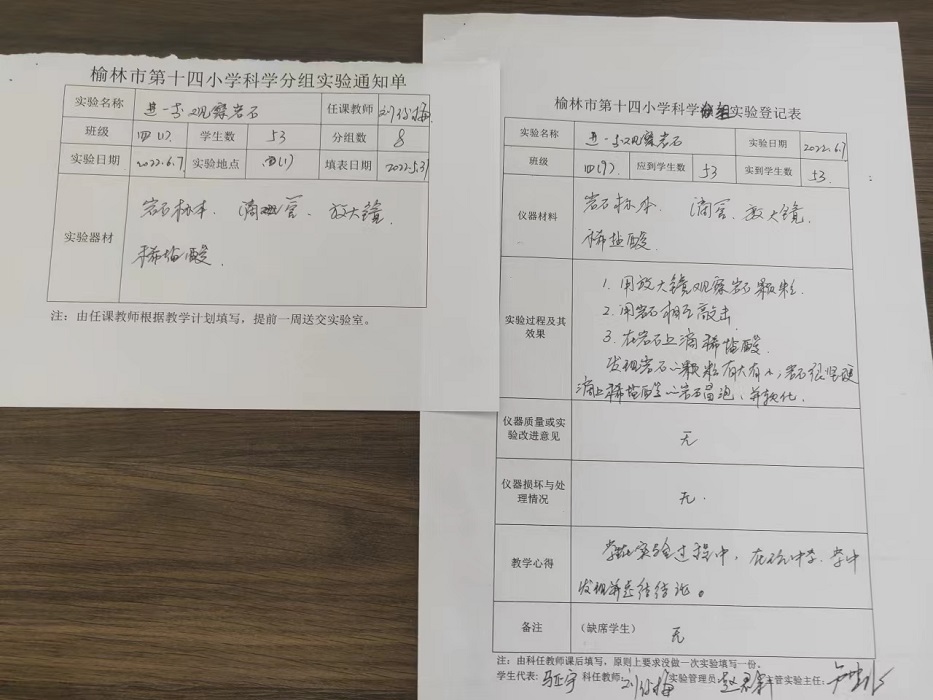 榆林市第十四小学科学分组实验通知单
实验名称 进一步观察岩石 任课教师
班级 四(1) 学生数 53 分组数 8
实验日期 2022.6.7 实验地点 四(1) 填表日期 2022.5.31
实验器材 岩石标本. 滴管、放大镜.
稀盐酸.
注：由任课教师根据教学计划填写，提前一周送交实验室。
榆林市第十四小学科学分组实验登记表
实验名称 进一步观察岩石 实验日期 2022.6.7
班级 应到学生数 53 实到学生数 53.
仪器材料 岩石标本. 滴管、放大镜.
稀盐酸
实验过程及其效果
1. 用放大镜观察岩石颗粒.
2. 用岩石相互敲击.
3. 在岩石上滴稀盐酸.
发现岩石的颗粒有大有小,岩石很坚硬
滴上稀盐酸的岩石冒泡、并软化.
仪器质量或实验改进意见 无
仪器损坏与处理情况 无.
教学心得 实验过程中，在玩中学、学中
发现并总结结论。
备注 （缺席学生） 无
注：由科任教师课后填写，原则上要求没做一次实验填写一份.
学生代表: 科任教师: 实验管理员: 主管实验主任: